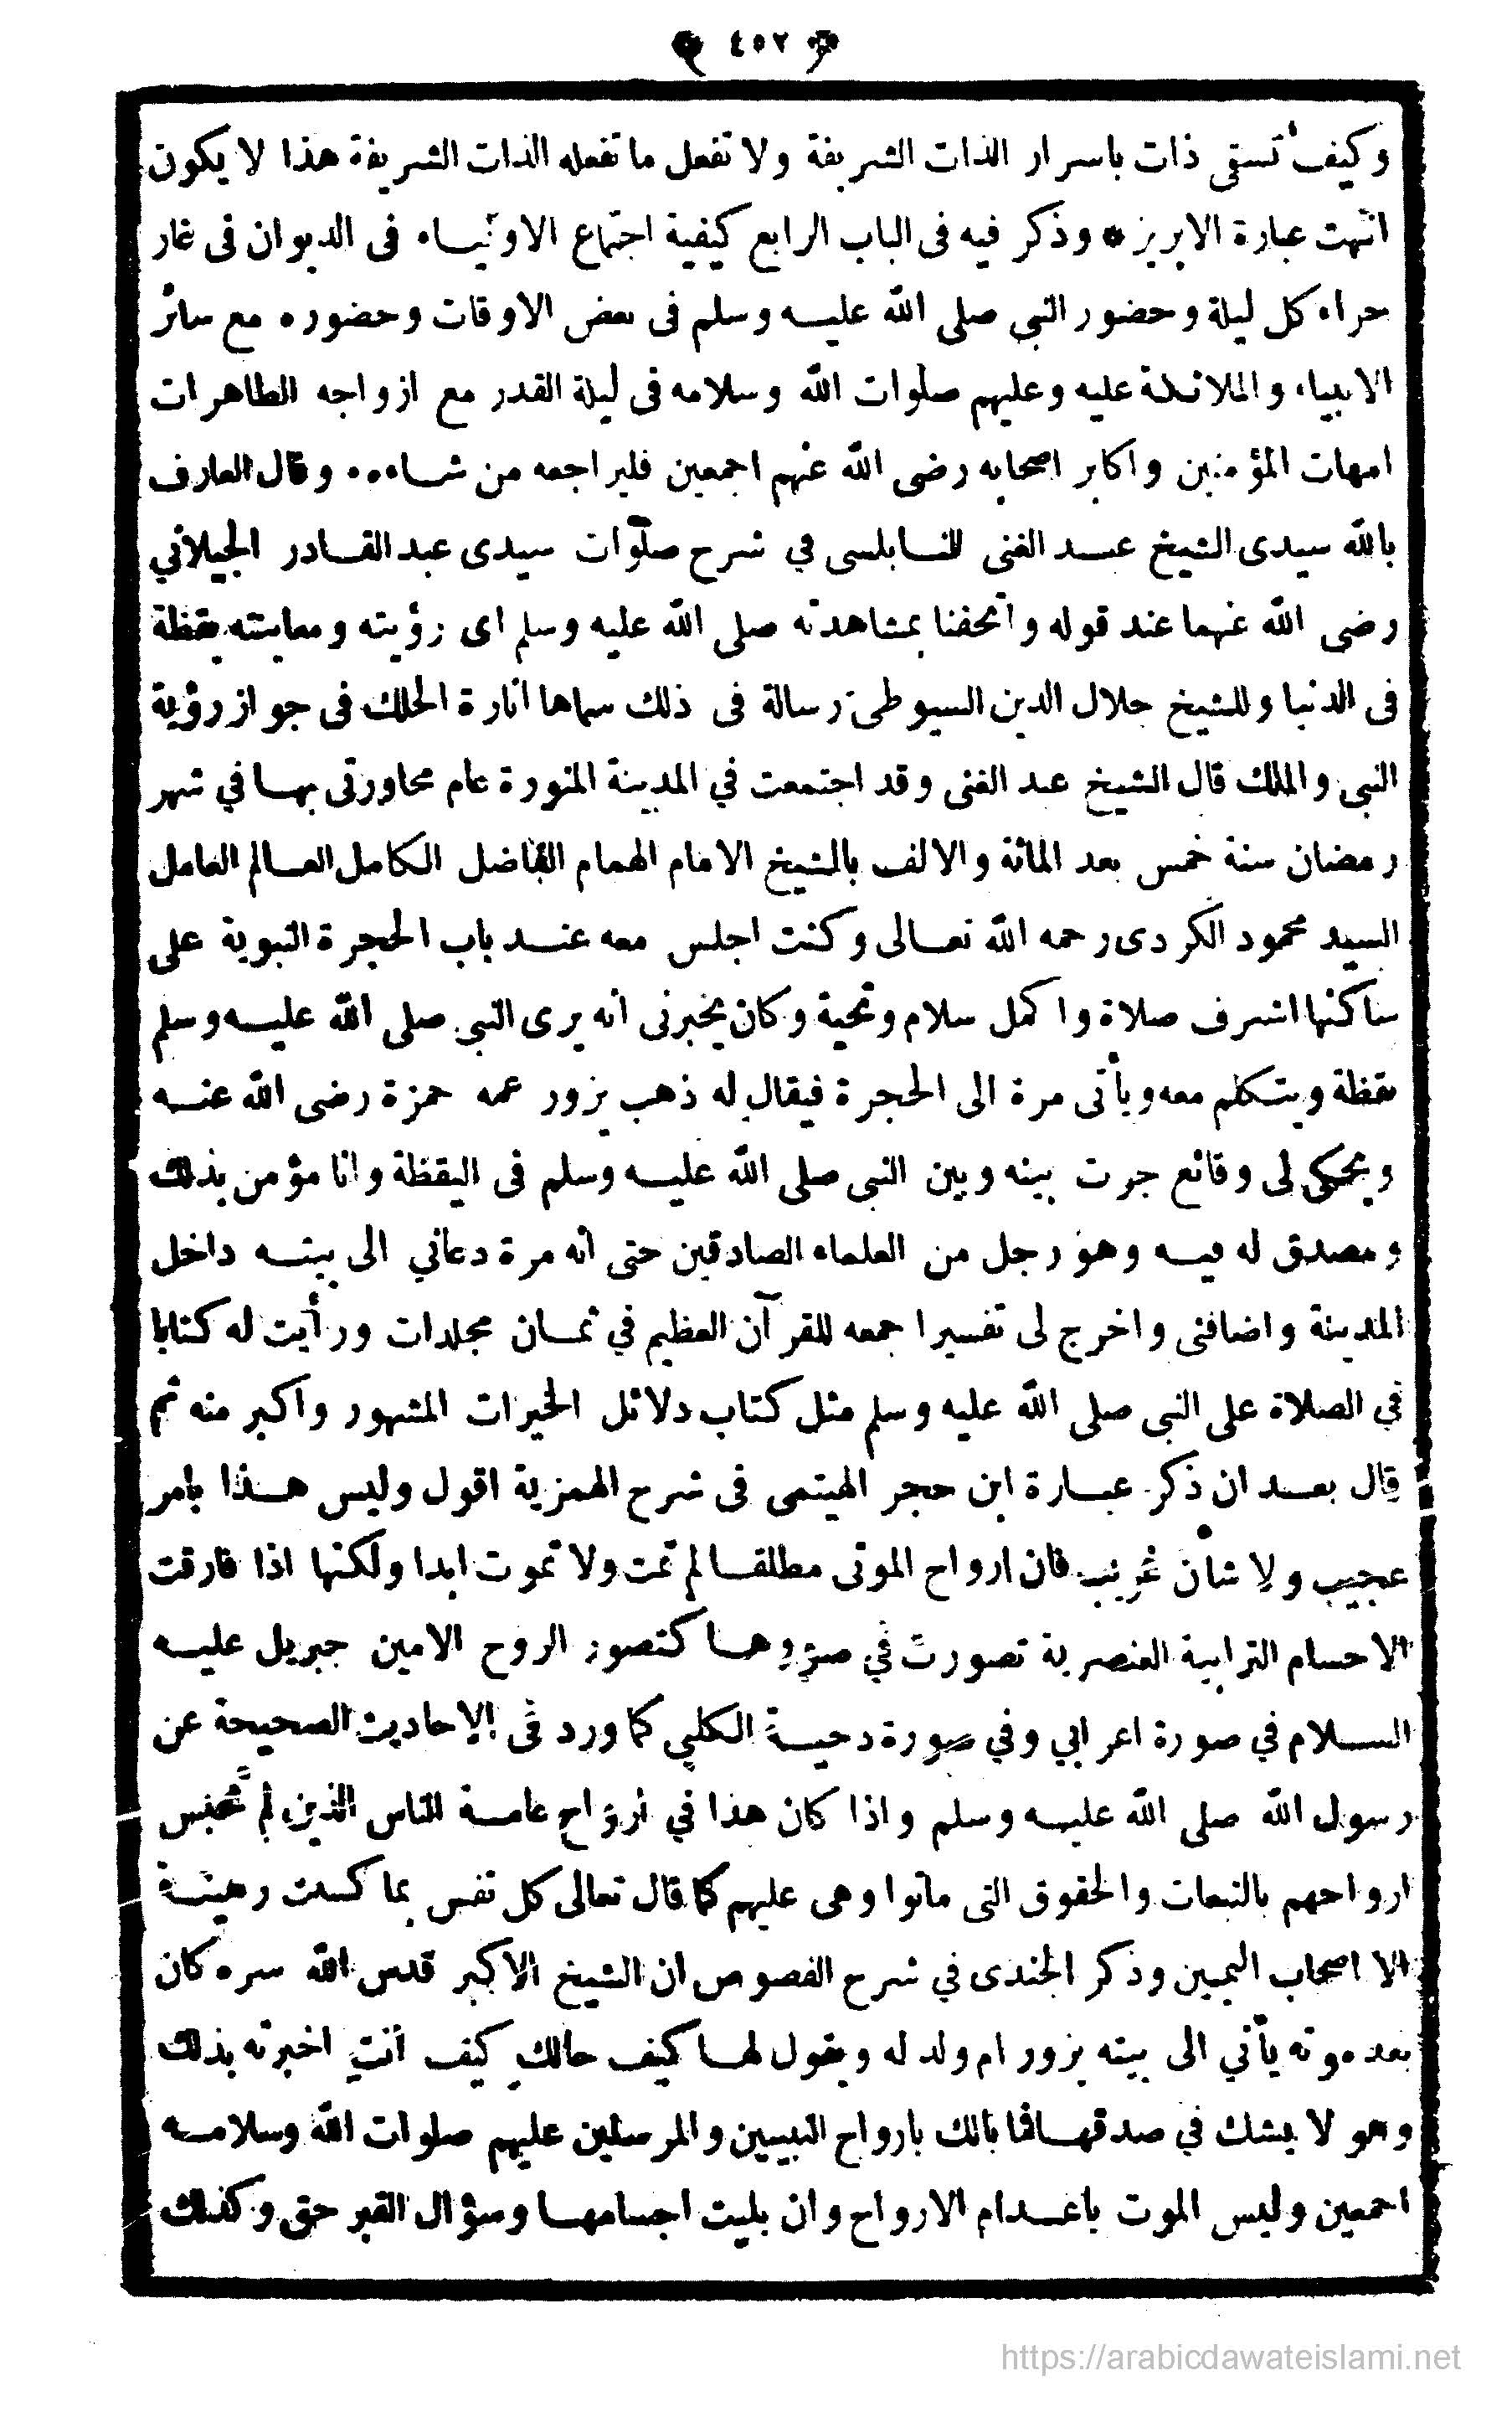 ٤٥٢
وكيف تسقى ذات باسرار الذات الشريفة ولا تفعل ما تفعله الذات الشريفة هذا لا يكون
انتهت عبارة الابريز * وذكر فيه فى الباب الرابع كيفية اجتماع الاولياء فى الديوان فى غار
حراء كل ليلة وحضور النبى صلى الله عليه وسلم فى بعض الاوقات وحضوره مع سائر
الانبياء والملائكة عليه وعليهم صلوات الله وسلامه فى ليلة القدر مع ازواجه الطاهرات
امهات المؤمنين واكابر اصحابه رضى الله عنهم اجمعين فليراجعه من شاءه ٠ وقال العارف
بالله سيدى الشيخ عبد الغنى النابلسى في شرح صلوات سيدى عبد القادر الجيلاني
رضى الله عنهما عند قوله واتحفنا بمشاهدته صلى الله عليه وسلم اى رؤيته ومعاينته يقظة
فى الدنيا وللشيخ جلال الدين السيوطى رسالة فى ذلك سماها انارة الحلك فى جواز رؤية
النبى والملك قال الشيخ عبد الغنى وقد اجتمعت في المدينة المنورة عام مجاورتى بها في شهر
رمضان سنة خمس بعد المائة والالف بالشيخ الامام الهمام الفاضل الكامل العالم العامل
السيد محمود الكردى رحمه الله تعالى وكنت اجلس معه عند باب الحجرة النبوية على
ساكنها اشرف صلاة واكمل سلام وتحية وكان يخبرنى انه يرى النبى صلى الله عليه وسلم
يقظة ويتكلم معه ويأتى مرة الى الحجرة فيقال له ذهب يزور عمه حمزة رضى الله عنه
ويحكى لى وقائع جرت بينه وبين النبى صلى الله عليه وسلم فى اليقظة وانا مؤمن بذلك
ومصدق له فيه وهو رجل من العلماء الصادقين حتى انه مرة دعاني الى بيته داخل
المدينة واضافنى واخرج لى تفسيرا جمعه للقرآن العظيم في ثمان مجلدات ورأيت له كتابا
في الصلاة على النبى صلى الله عليه وسلم مثل كتاب دلائل الخيرات المشهور واكبر منه ثم
قال بعد ان ذكر عبارة ابن حجر الهيتمى فى شرح الهمزية اقول وليس هذا بامر
عجيب ولا شان غريب فان ارواح الموتى مطلقا لم تمت ولا تموت ابدا ولكنها اذا فارقت
الاجسام الترابية العنصرية تصورت في صورها كتصور الروح الامين جبريل عليه
السلام في صورة اعرابي وفي صورة دحية الكلبي كما ورد فى الاحاديث الصحيحة عن
رسول الله صلى الله عليه وسلم واذا كان هذا في ارواح عامة الناس الذين لم تحبس
ارواحهم بالتبعات والحقوق التى ماتوا وهى عليهم كما قال تعالى كل نفس بما كسبت رهينة
الا اصحاب اليمين وذكر الجندى في شرح الفصوص ان الشيخ الاكبر قدس الله سره كان
بعد موته يأتي الى بيته يزور ام ولد له ويقول لها كيف حالك كيف انت اخبرته بذلك
وهو لا يشك في صدقها فما بالك بارواح النبيين والمرسلين عليهم صلوات الله وسلامه
اجمعين وليس الموت باعدام الارواح وان بليت اجسامها وسؤال القبر حق وكذلك
https://arabicdawateislami.net